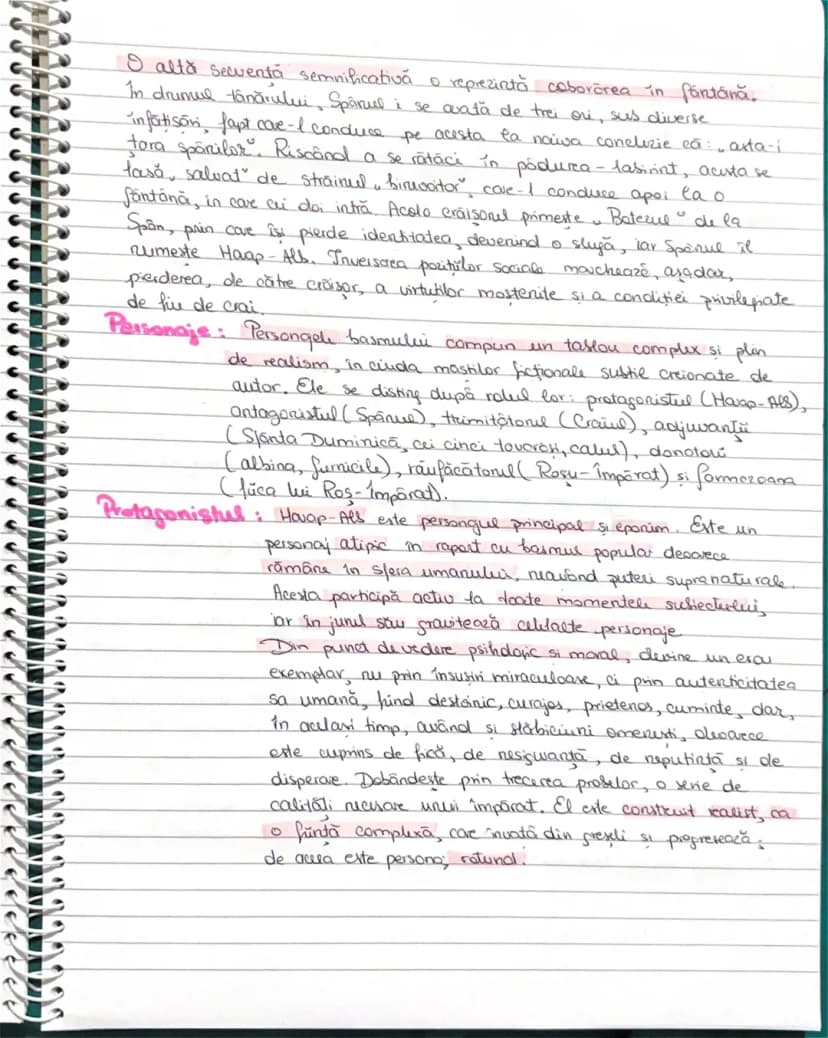 O altă secvență semnificativă o reprezintă coborârea în fântână.
În drumul tânărului, Spânul i se arată de trei ori, sub diverse
înfățișări, fapt care-l conduce pe acesta la naiva concluzie că: „asta-i
țara spânilor". Riscând a se rătăci în pădurea-labirint, acesta se
lasă „salvat" de străinul „binevoitor", care-l conduce apoi la o
fântână, în care cei doi intră. Acolo crăișorul primește „Botezul" de la
Spân, prin care își pierde identitatea, devenind o slugă, iar Spânul îl
numește Harap-Alb. Inversarea pozițiilor sociale marchează, așadar,
pierderea, de către crăișor, a virtuților moștenite și a condiției privilegiate
de fiu de crai.
Personaje: Personajele basmului compun un tablou complex și plin
de realism, în ciuda măștilor ficționale subtil creionate de
autor. Ele se disting după rolul lor: protagonistul (Harap-Alb),
antagonistul (Spânul), trimițătorul (Craiul), adjuvanții
(Sfânta Duminică, cei cinci tovarăși, calul), donatorii
(albina, furnicile), răufăcătorul (Roșu-Împărat) și farmazoana
(fiica lui Roș-Împărat).
Protagonistul: Harap-Alb este personajul principal și eponim. Este un
personaj atipic în raport cu basmul popular deoarece
rămâne în sfera umanului, neavând puteri supranaturale.
Acesta participă activ la toate momentele subiectului,
iar în jurul său gravitează celelalte personaje
Din punct de vedere psihologic și moral, devine un erou
exemplar, nu prin însușiri miraculoase, ci prin autenticitatea
sa umană, fiind destoinic, curajos, prietenos, cuminte, dar,
în același timp, având și slăbiciuni omenești, deoarece
este cuprins de frică, de nesiguranță, de neputință și de
disperare. Dobândește prin trecerea probelor, o serie de
calități necesare unui împărat. El este construit realist, ca
o ființă complexă, care învață din greșeli și progresează;
de aceea este personaj rotund.